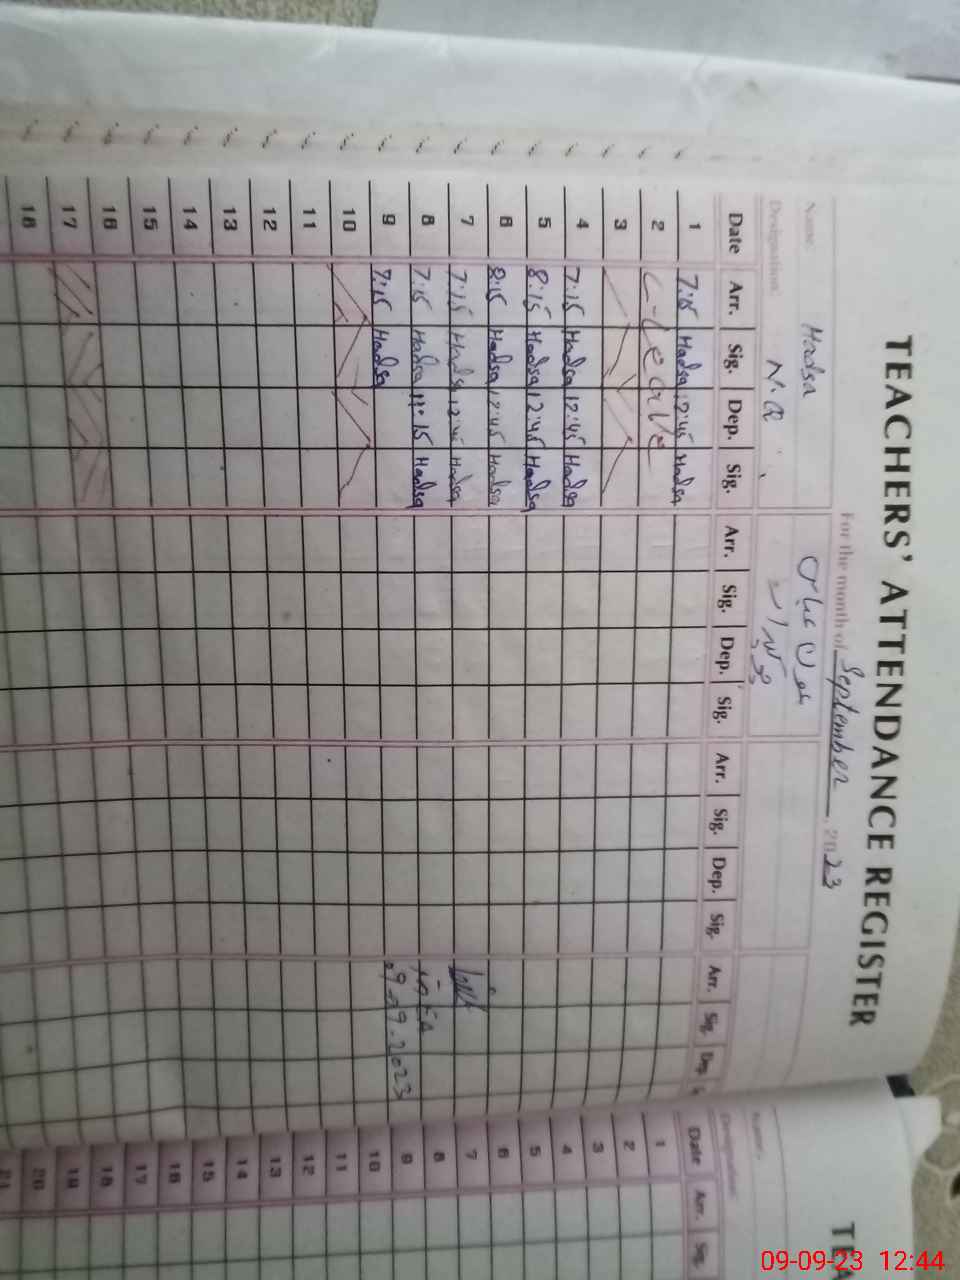 TEACHERS' ATTENDANCE REGISTER
For the month of September, 2023
Name: Hadsa
Designation: N.Q
Date Arr. Sig. Dep. Sig. Arr. Sig. Dep. Sig. Arr. Sig. Dep. Sig. Arr. Sig. Dep.
1 7:15 Hadsa 12:45 Hadsa
2 Leave
3
4 7:15 Hadsa 12:45 Hadsa
5 8:15 Hadsa 12:45 Hadsa
6 8:15 Hadsa 12:45 Hadsa
7 7:15 Hadsa 12:45 Hadsa
8 7:15 Hadsa 11:15 Hadsa
9 7:15 Hadsa 9-9-2023
10
11
12
13
14
15
16
17
18
TEA
Name:
Designation:
Date Arr. Sig.
1
2
3
4
5
6
7
8
9
10
11
12
13
14
15
16
17
18
19
20
21
09-09-23 12:44